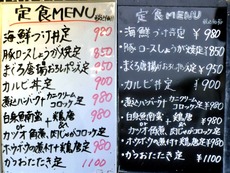 定食MENU
海鮮づけ丼 980
豚ロースしょうが焼定 850
まぐろ唐揚おろしポン定 950
カルビ丼定 900
煮込ハンバーグ カニクリームコロッケ定 980
白身魚南蛮 + 鶏唐 850
or
カツオ角煮、肉じゃがコロッケ定
ホウボウの煮付+鶏唐定 980
かつおたたき定 1100
定食MENU
・海鮮づけ丼定 ¥980
・豚ロースしょうが焼定 ¥850
・まぐろ唐揚おろしポン定 ¥950
・カルビ丼定 ¥900
・煮込ハンバーグ カニクリームコロッケ定 ¥980
・白身魚南蛮 + 鶏唐 ¥850
or
カツオ角煮、肉じゃがコロッケ定
・ホウボウの煮付+鶏唐定 ¥980
・かつおたたき定 ¥1100